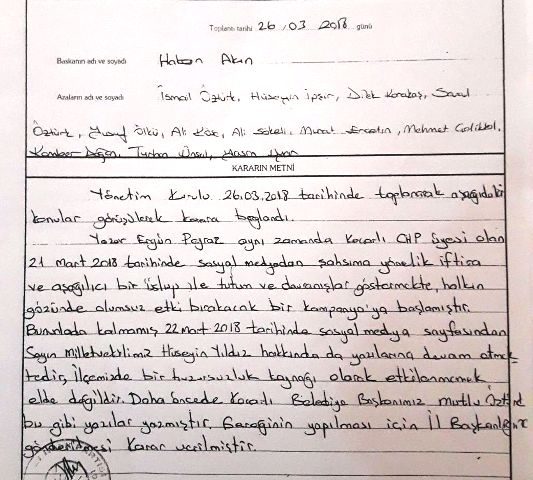 Toplantı tarihi 26/03 2018 günü
Başkanın adı ve soyadı Hakan Akın
Azaların adı ve soyadı İsmail Öztürk, Hüseyin İpşir, Dilek Karakaş,
Öztürk, Yusuf Ülkü, Ali Köse, Ali Mehmet
KARARIN METNİ
Yönetim Kurulu 26.03.2018 tarihinde toplanarak aşağıdaki
konular görüşülerek karara bağlandı.
Yazar Ergün Poyraz aynı zamanda Koçarlı CHP üyesi olan
21 Mart 2018 tarihinde sosyal medyadan şahsıma yönelik iftira
ve aşağılıcı bir üslup ile tutum ve davranışlar göstermekte, halkın
gözünde olumsuz etki bırakacak bir kampanya'ya başlamıştır.
Bununlada kalmamış 22 Mart 2018 tarihinde sosyal medya sayfasından
Sayın Milletvekilimiz Hüseyin Yıldız hakkında da yazılarına devam etmek
tedir, ilçemizde bir huzursuzluk kaynağı olarak etkilenmemek
elde değildir. Daha öncede Koçarlı Belediye Başkanımız Mutlu
bu gibi yazılar yazmıştır. Gereğinin yapılması için İl
Karar verilmiştir.